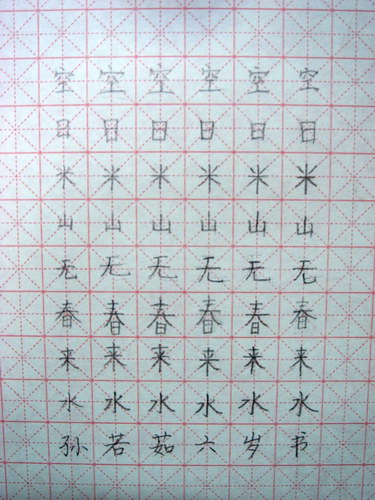 空空空空空空
日日日日日日
米米米米米米
山山山山山山
无无无无无无
春春春春春春
来来来来来来
水水水水水水
孙若茹六岁书